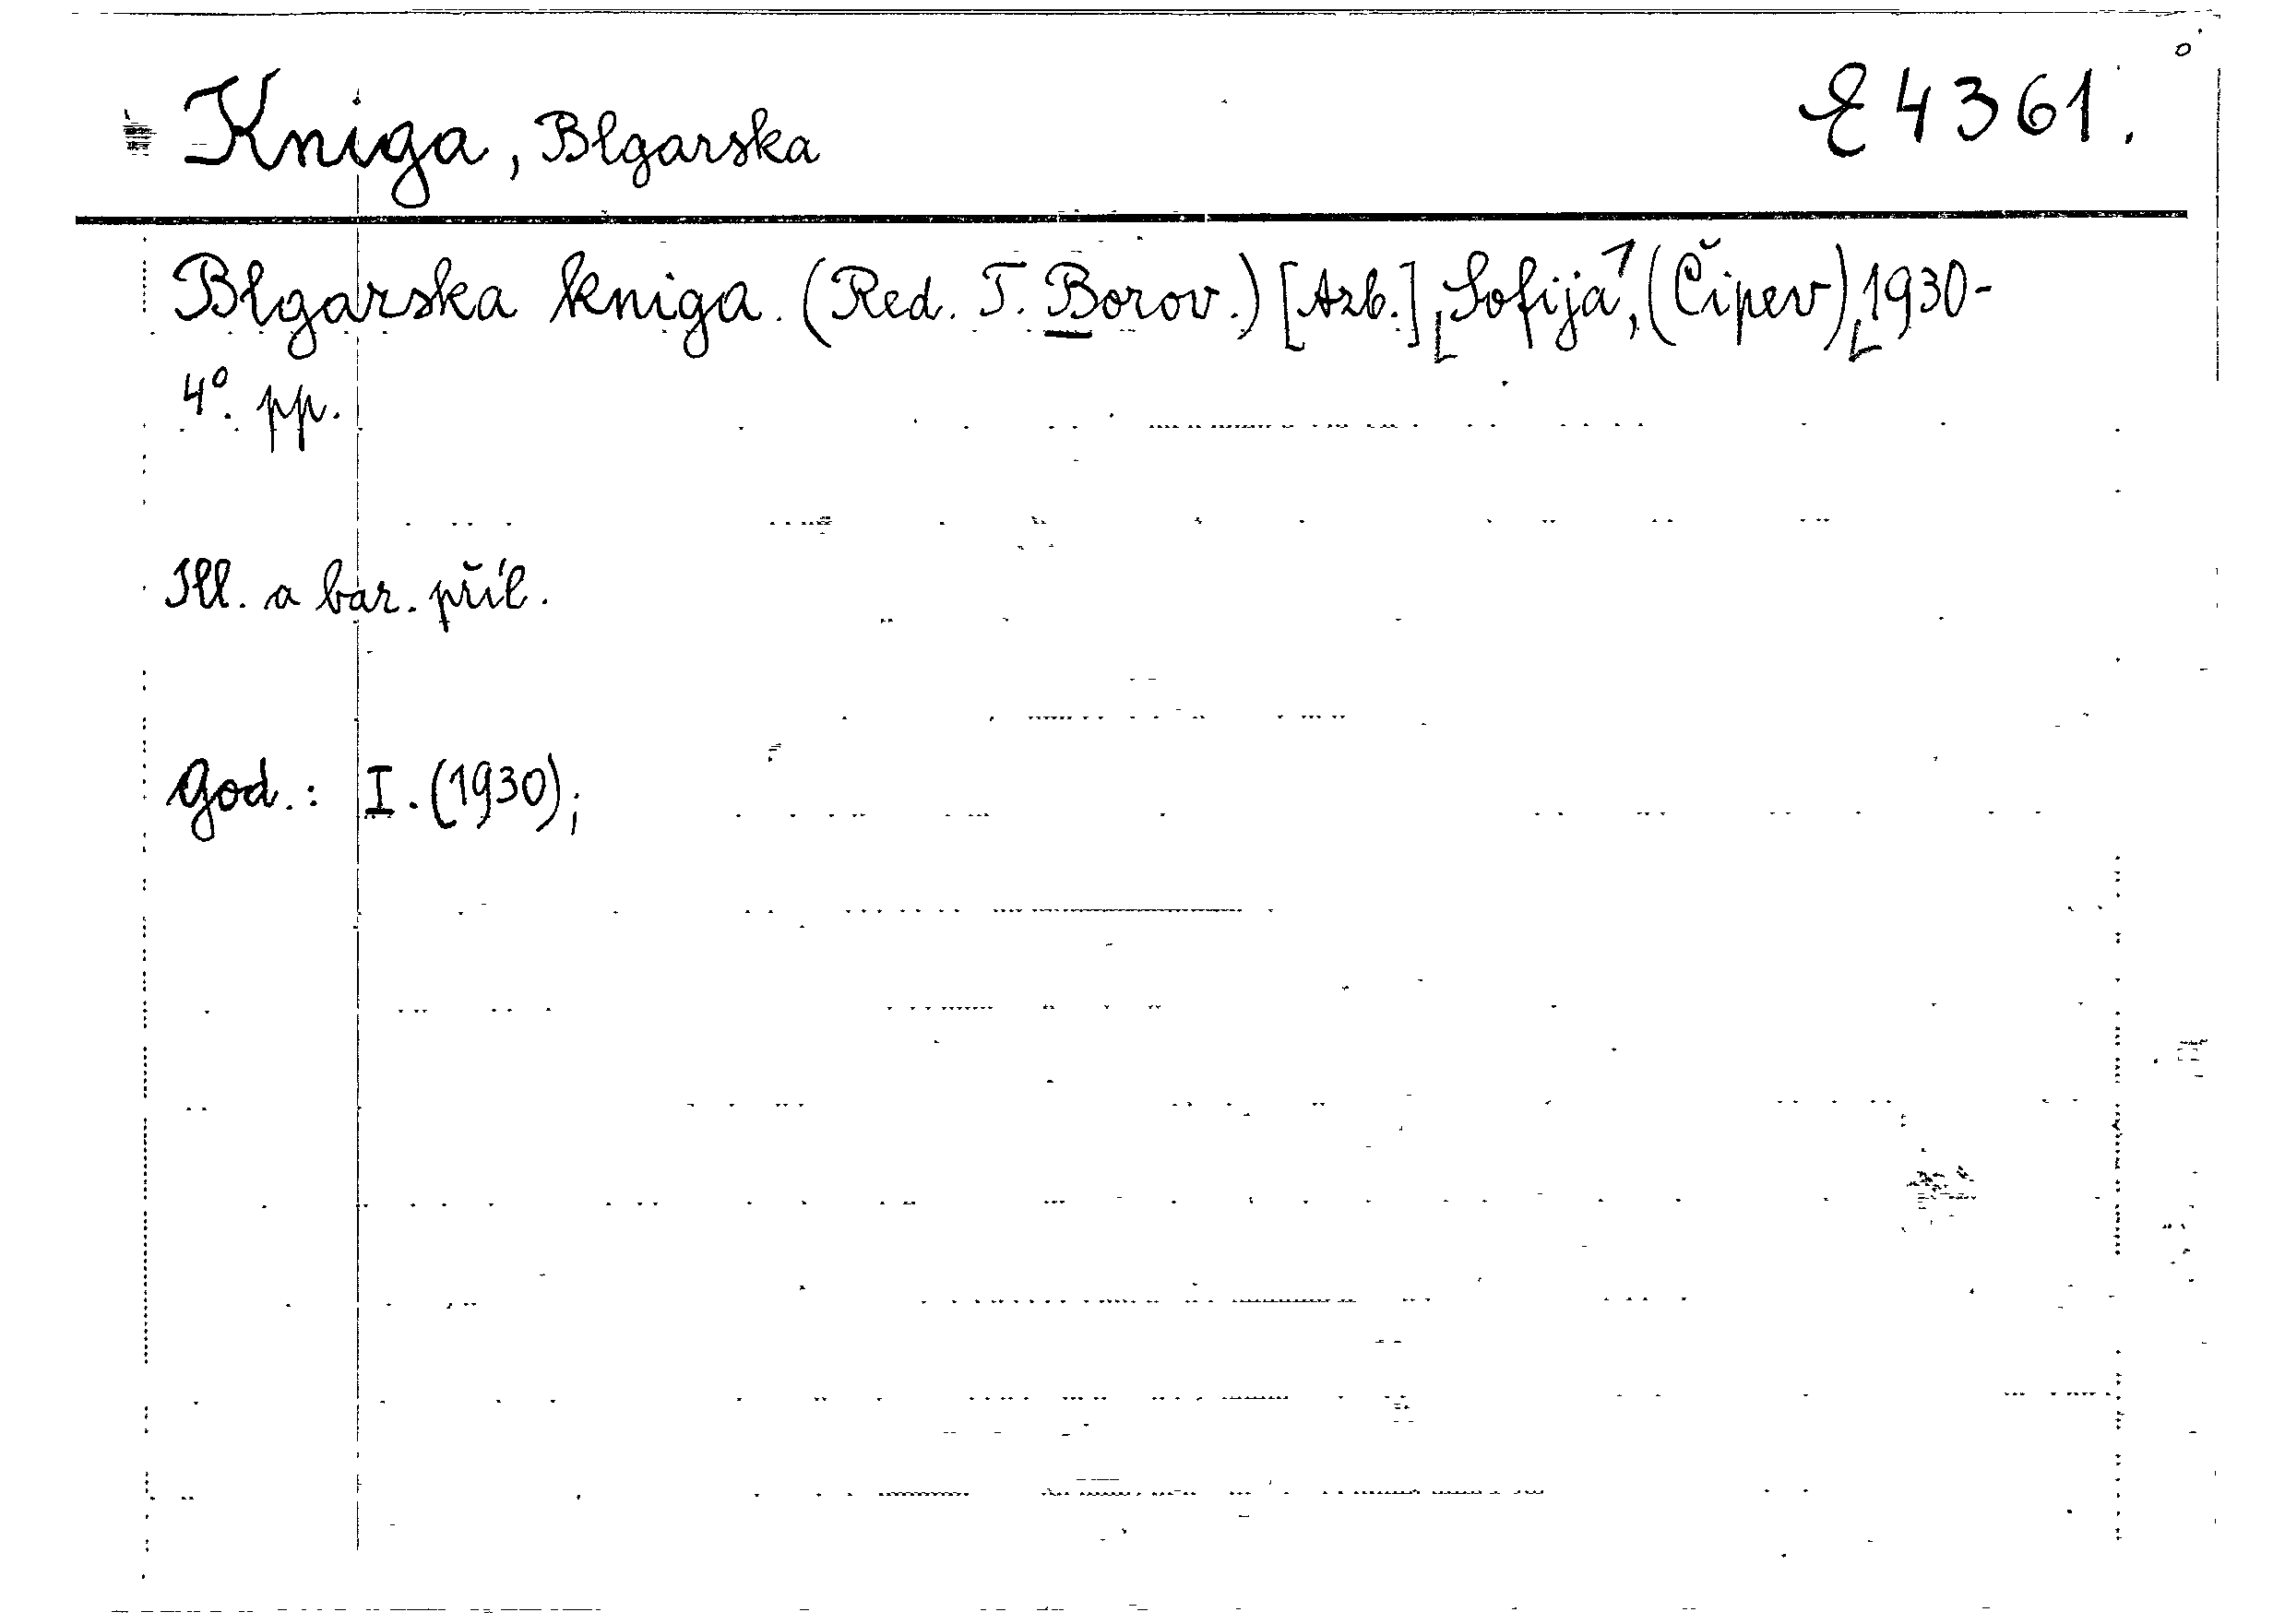 Kniga, Blgarska E 4361.
Blgarska kniga. (Red. T. Borov.) [Azb.] Sofija, (Čipev) 1930-
4°. pp.
Ill. a bar. příl.
God.: I. (1930);